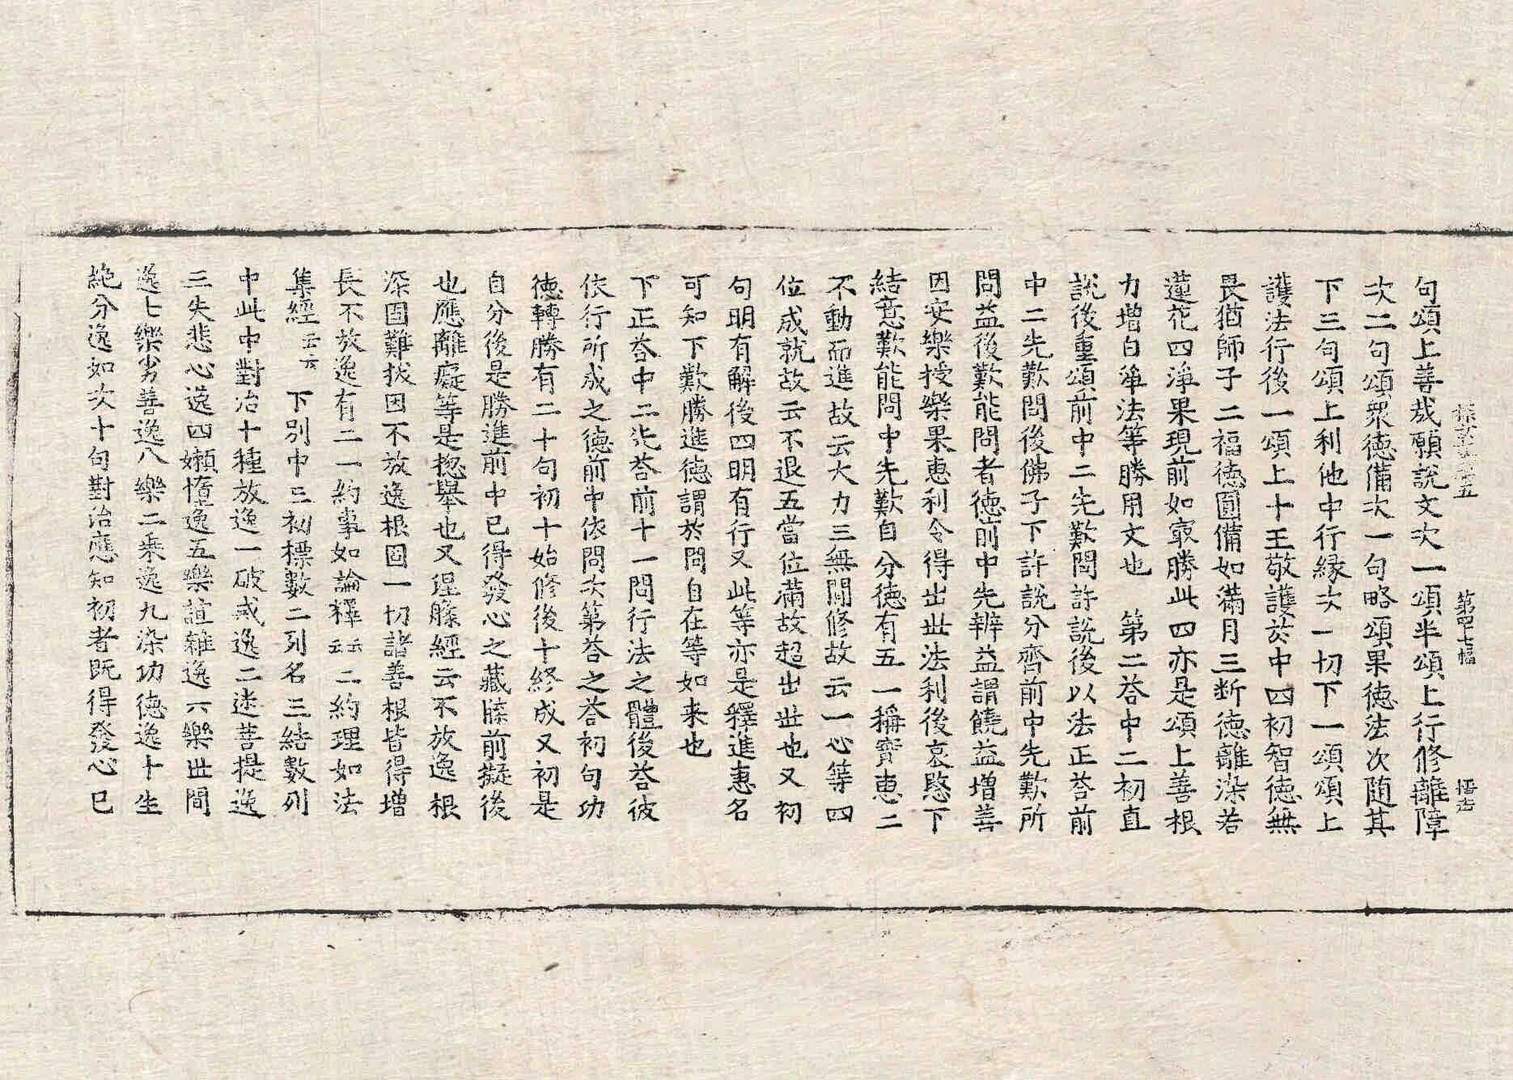 探玄記卷五　第四十七幅　悟古
句頌上善哉願說文次一頌半頌上行修離障
次二句頌衆德備次一句略頌果德法次隨其
下三句頌上利他中行緣次一切下一頌頌上
護法行後一頌上十王敬護於中四初智德無
畏猶師子二福德圓備如滿月三断德離染若
蓮花四淨果現前如㝡勝此四亦是頌上善根
力增白淨法等勝用文也　第二荅中二初直
說後重頌前中二先歎問許說後以法正荅前
中二先歎問後佛子下許說分齊前中先歎所
問益後歎能問者德前中先辨益謂饒益增善
因安樂授樂果惠利令得出世法利後哀愍下
結意歎能問中先歎自分德有五一稱實惠二
不動而進故云大力三無間修故云一心等四
位成就故云不退五當位滿故超出世也又初
句明有解後四明有行又此等亦是釋進惠名
可知下歎勝進德謂於問自在等如来也
下正荅中二先荅前十一問行法之體後荅彼
依行所成之德前中依問次第荅之荅初句功
德轉勝有二十句初十始修後十終成又初是
自分後是勝進前中已得發心之藏牒前擬後
也應離癡等是揔舉也又涅槃經云不放逸根
深固難拔因不放逸根固一切諸善根皆得增
長不放逸有二一約事如論釋云云二約理如法
集經云云　下別中三初標數二列名三結數列
中此中對治十種放逸一破戒逸二迷菩提逸
三失悲心逸四嬾惰逸五樂諠雜逸六樂世間
逸七樂劣善逸八樂二乘逸九染功德逸十生
絶分逸如次十句對治應知初者既得發心已